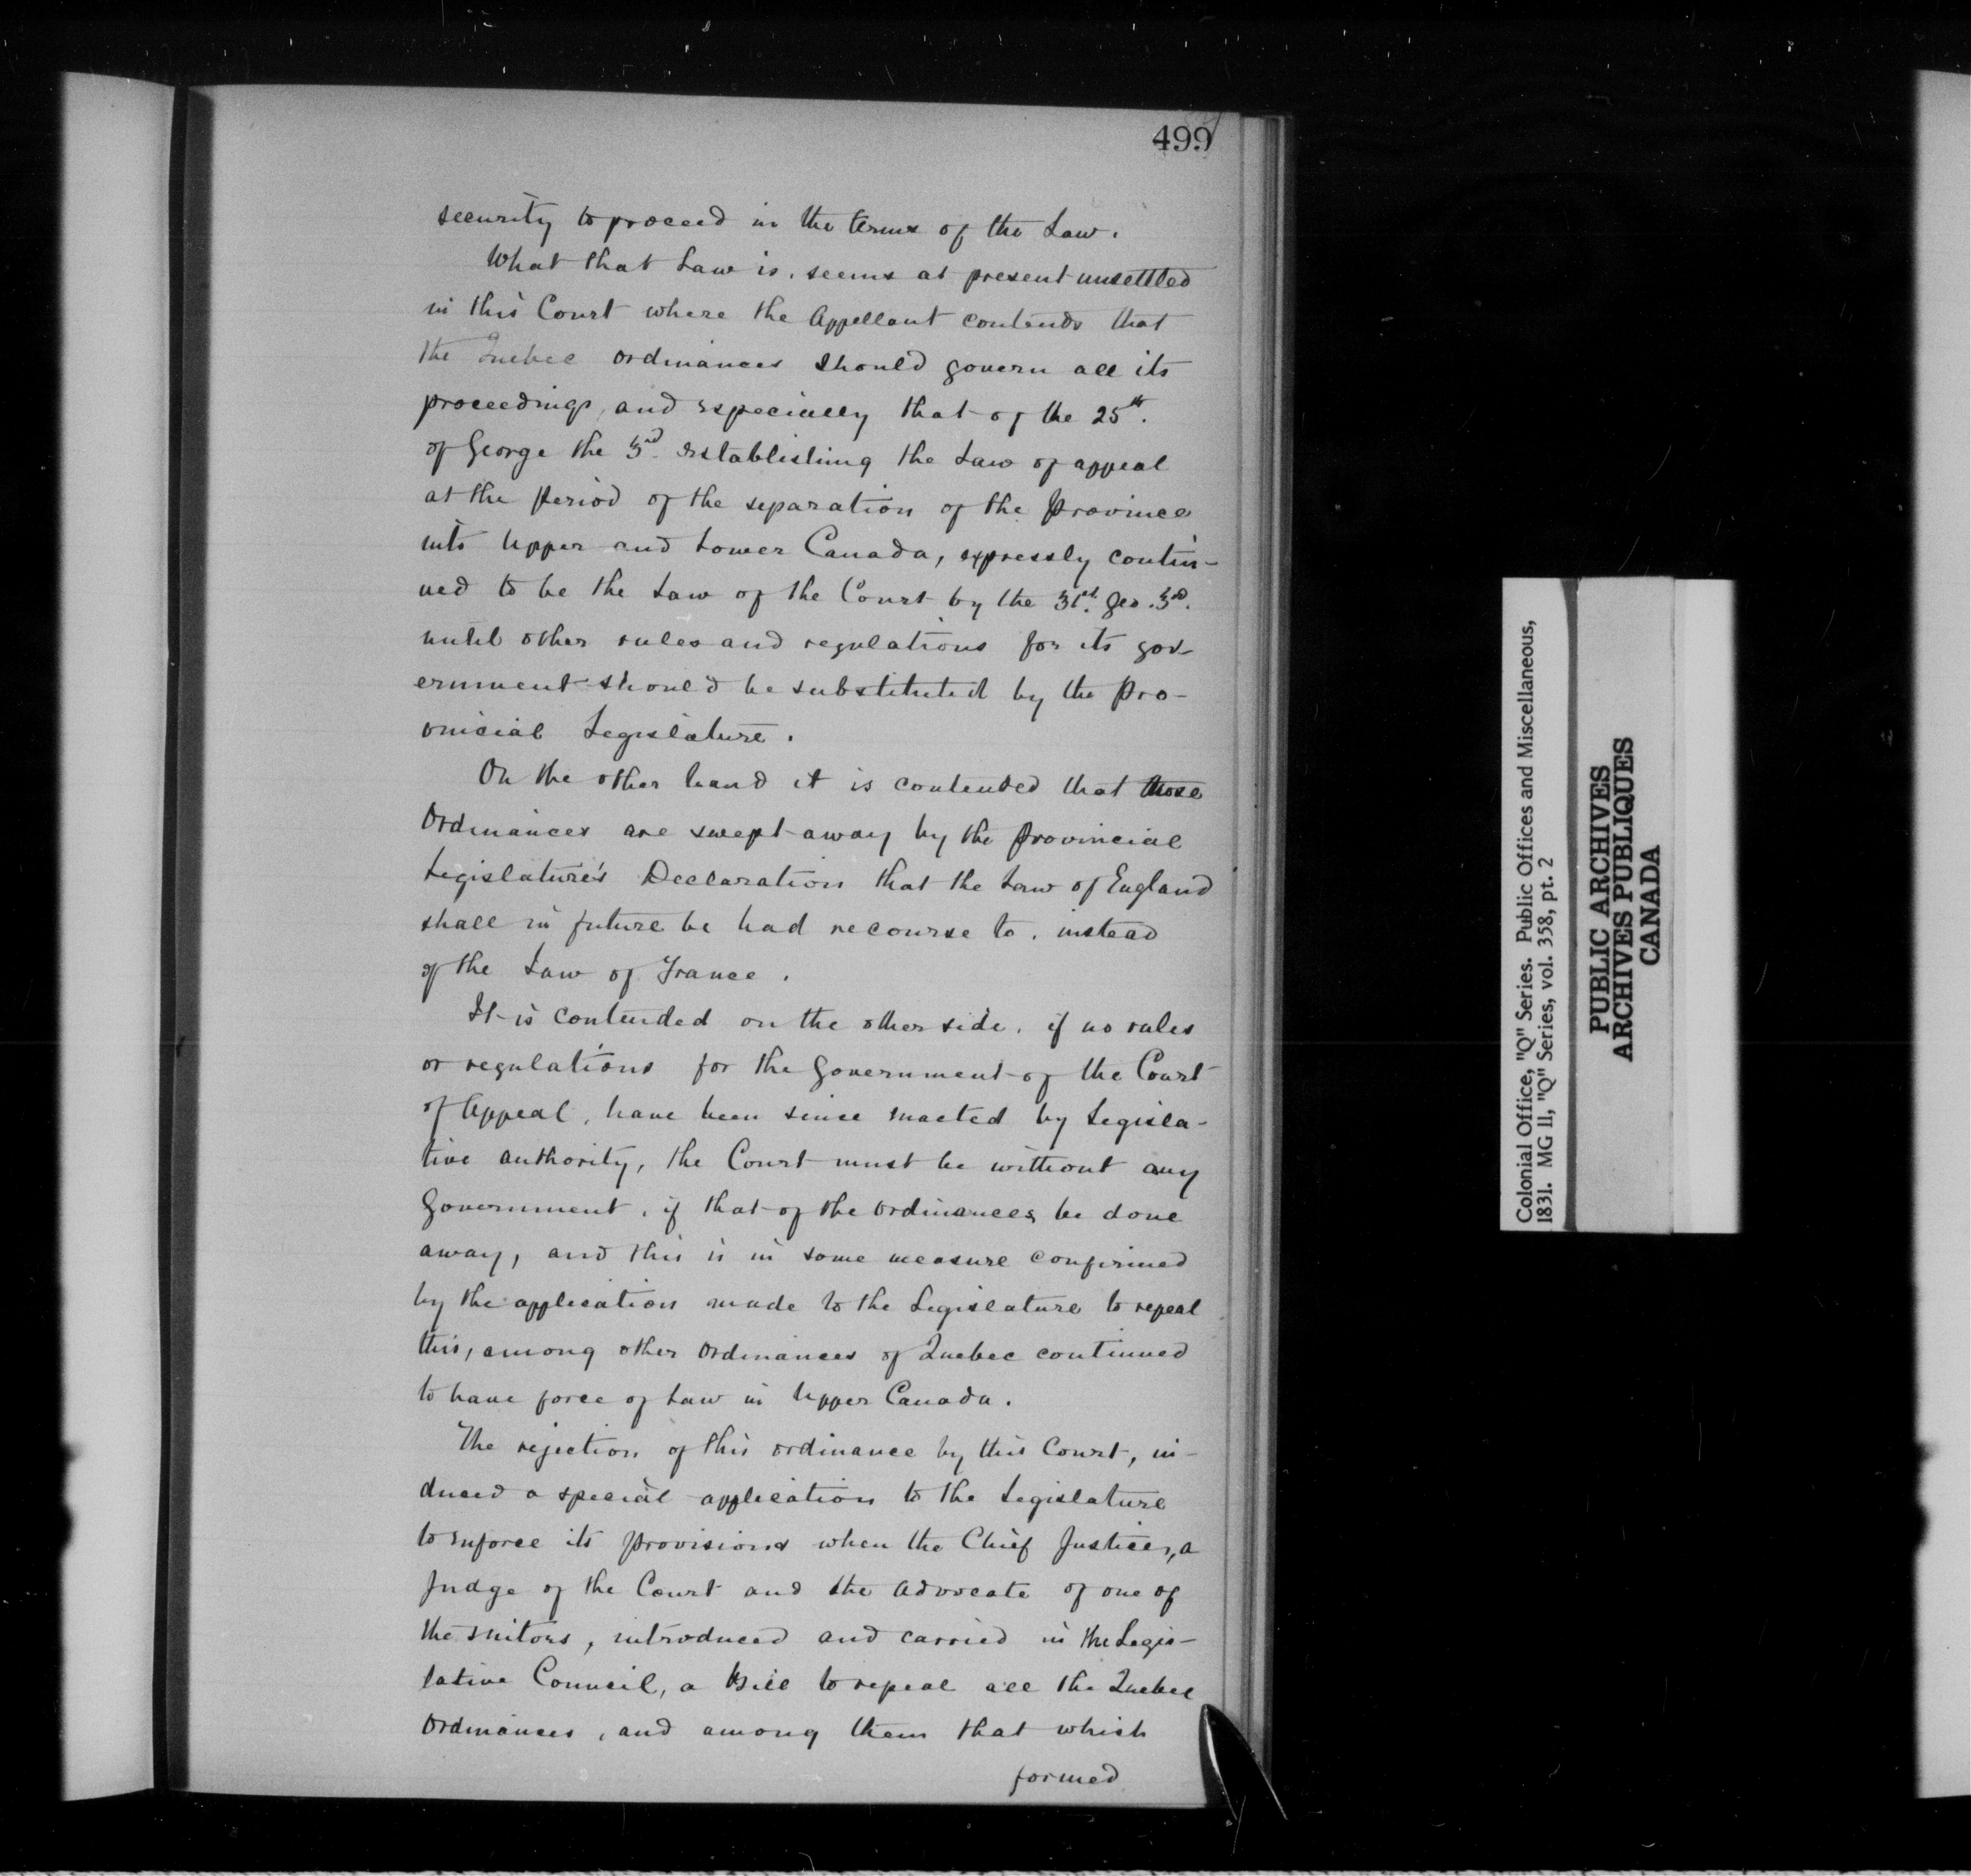 499
security to proceed in the terms of the Law.
What that Law is, seems at present unsettled
in this Court where the Appellant contends that
the Quebec ordinances should govern all its
proceedings, and especially that of the 25th.
of George the 3rd. establishing the Law of appeal
at the period of the separation of the Province
into Upper and Lower Canada, expressly contin-
ued to be the Law of the Court by the 31st. Geo. 3rd.
until other rules and regulations for its gov-
ernment should be substituted by the Pro-
vincial Legislature.
On the other hand it is contended that those
Ordinances are swept away by the Provincial
Legislature's Declaration that the Law of England
shall in future be had recourse to, instead
of the Law of France.
It is contended on the other side, if no rules
or regulations for the Government of the Court
of Appeal, have been since enacted by Legisla-
tive authority, the Court must be without any
Government, if that of the Ordinances be done
away, and this is in some measure confirmed
by the application made to the Legislature to repeal
this, among other Ordinances of Quebec continued
to have force of Law in Upper Canada.
The rejection of this ordinance by this Court, in-
duced a special application to the Legislature
to enforce its provisions when the Chief Justice, a
Judge of the Court and the advocate of one of
the suitors, introduced and carried in the Legis-
lative Council, a Bill to repeal all the Quebec
Ordinances, and among them that which
formed
Colonial Office, "Q" Series. Public Offices and Miscellaneous,
1831. MG 11, "Q" Series, vol. 358, pt. 2
PUBLIC ARCHIVES
ARCHIVES PUBLIQUES
CANADA